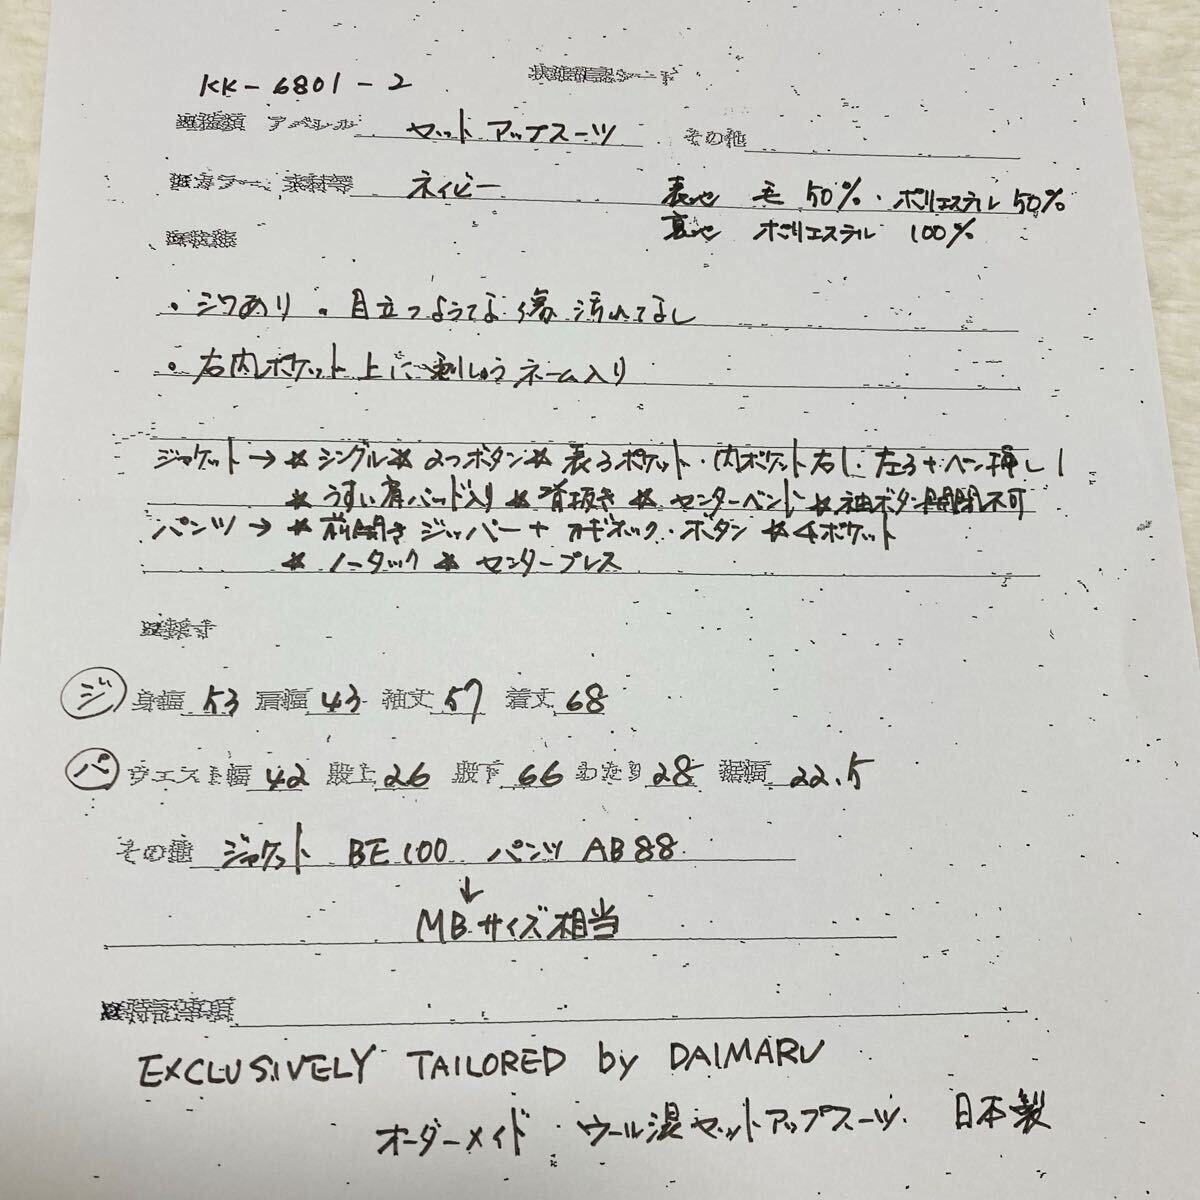 KK-6801-2
状態確認シート
アパレル セットアップスーツ その他
カラー、素材等 ネイビー 表地 毛 50%・ポリエステル 50%
裏地 ポリエステル 100%
・シワあり ・目立つような傷 汚れてなし
・右内ポケット上に刺しゅうネーム入り
ジャケット→ ☆シングル☆2つボタン☆表3ポケット・内ポケット右1・左3+ペン挿し1
☆うすい肩パッド入り ☆背抜き ☆センターベント ☆袖ボタン開閉不可
パンツ→ ☆前開きジッパー+ ボタン ☆4ポケット
☆ノータック ☆センタープレス
ジ 身幅 53 肩幅 43 袖丈 57 着丈 68
パ ウエスト幅 42 股上 26 股下 66 わたり 28 裾幅 22.5
その他 ジャケット BE100 パンツ AB88
↓
MBサイズ相当
特記事項
EXCLUSIVELY TAILORED by DAIMARU
オーダーメイド ウール混セットアップスーツ 日本製